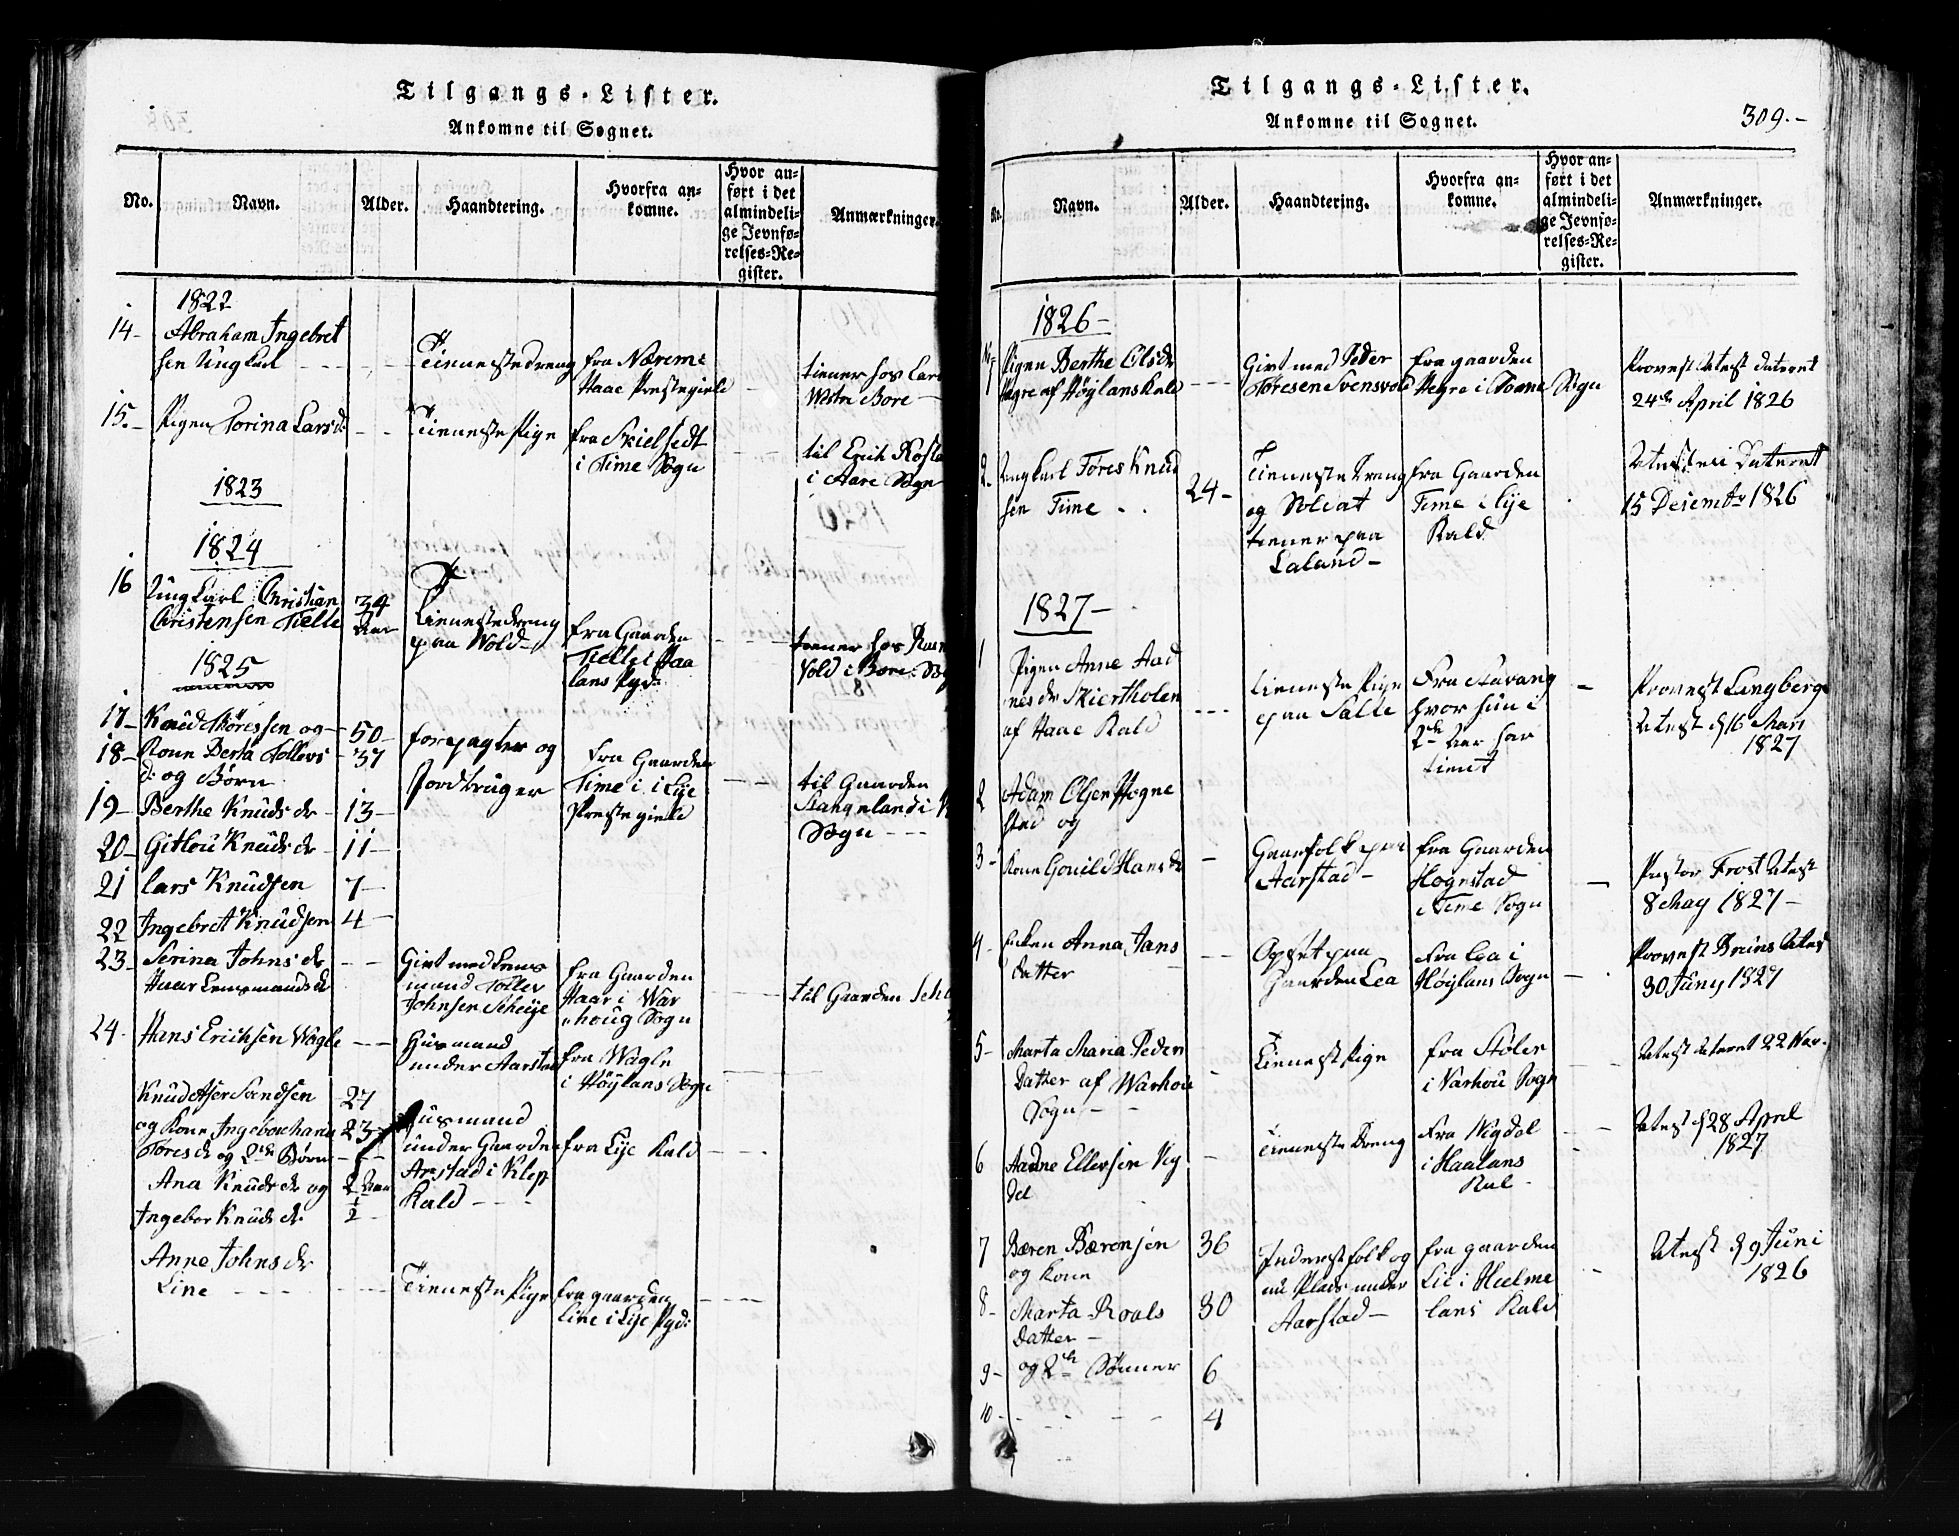 Tilgangs-Lister.
Ankomne til Sognet.
No.
Navn.
Alder.
Haandtering.
Hvorfra an-
komne.
Hvor an-
ført i det
almindeli-
ge Jevnfø-
relses-Re-
gister.
Anmærkninger.
1822
14-
Abraham Ingebret
sen Ungkarl
Tienestedreng
fra Næreme
Haae Prestegield
tiener hos Lars
Westn Bore
15.-
Pigen Torina Larsd:
Tieneste Pige
fra Skielsedt
i Time Sogn
til Erich
i Aare Sogn
1823
1824
16
Ungkarl Christian
Christensen Tielle
34
Aar
Tienestedreng
paa Wold-
fra Gaarden
Tielle i Haa
lans Pgd:
tiener hos
Vold i Bore Sog
1825
17-
Knud Thöressen og
50-
18-
Kone Berta Tollevs
d: og Børn
37
forpagter og
Jordbruger
fra Gaarden
Time i Lye
Prestegield
til Gaarden
Stangeland i
Sogn
19-
Berthe Knuds dr
13-
20-
Gitlou Knuds dr
11-
21
Lars Knudsen
7-
22
Ingebret Knudsen
4-
23-
Serina Johns dr
Haar Lensmands d
Givt med Lens
mand Toller
Johnsen Scheije
fra Gaarden
Haar i War
houg Sogn
til Gaarden
24-
Hans Erichsen Wagle
Husmand
under Aarstad
fra Wagle
i Höylans Sogn
Knud Svendsen
27
og Kone
Tores dr og 2de Børn
23
Husmand
under Gaarden
Arstad i Klep
Kald
fra Lye Kald
Ana Knuds dr og
2 Aar
Ingebor Knuds dr.
1/2
Anne Johns dr
Line
Tieneste Pige
fra gaarden
Line i Lye Pgd:
Tilgangs-Lister.
Ankomne til Sognet.
309.-
No.
Navn.
Alder.
Haandtering.
Hvorfra an-
komne.
Hvor an-
ført i det
almindeli-
ge Jevnfø-
relses-Re-
gister.
Anmærkninger.
1826-
1
Pigen Berthe Olsdr
Hegre af Höylans Kald
Givt med Peder
Toresen Svensvold
fra gaarden
Hegre i
Sogn
Provest Atest dateret
24de April 1826
2
Ungkarl Töres Knud
sen Time
24-
Tieneste dreng
og Soldat
tiener paa
Laland-
fra Gaarden
Time i Lye
Kald
Atesten Dateret
15 Desembr 1826
1827-
1
Pigen Anne Aad
nes dr Skiertholen
af Haae Kald
tieneste Pige
paa Salte
Fra Stavang
hvor hun i
2de Aar har
tient
Provest Lungberge
Atest d 16 Mars
1827
2
Adam Olsen Hogne
stad og
3-
Kone Gonild Hansdr
Gaarfolk paa
Aarstad-
fra Gaarden
Hognstad
i Time Sogn
Pastor Frost Atest
8 May 1827-
4-
Enken Anna Jans
datter
Opset paa
Gaarden Lea
fra Lea i
Höylans Sogn
Provest Bruns Atest
30 Juny 1827
5-
Marta Maria Peder
Datter af Warhou
Sogn-
Tienest Pige
fra Stöler
i Varhou Sogn
Atest dateret 22 Nov.
6
Aadne Ellersen Vig
del
Tieneste Dreng
fra Vigdal
i Haalans
Kal-
Atest d 28 April
1827
7
Bæren Bærensen
og kone
36
Inderest folk og
nu Plads under
Aarstad-
fra gaarden
Lie i Hielme
lans Kald
Atest d 9 Juni
1826
8-
Marta Roals
Datter-
30
9-
og 2de Sönner
6
10-
4